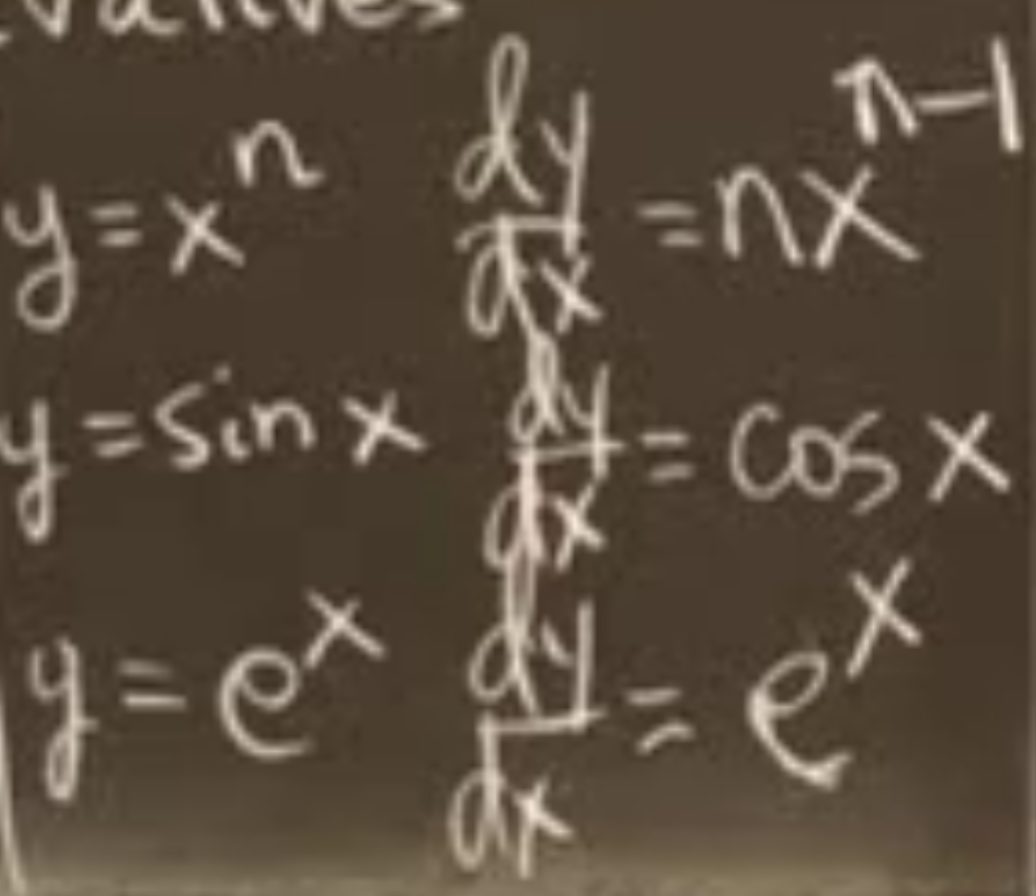 vatives
y = x^n dy/dx = nx^{n-1}
y = sin x dy/dx = cos x
y = e^x dy/dx = e^x